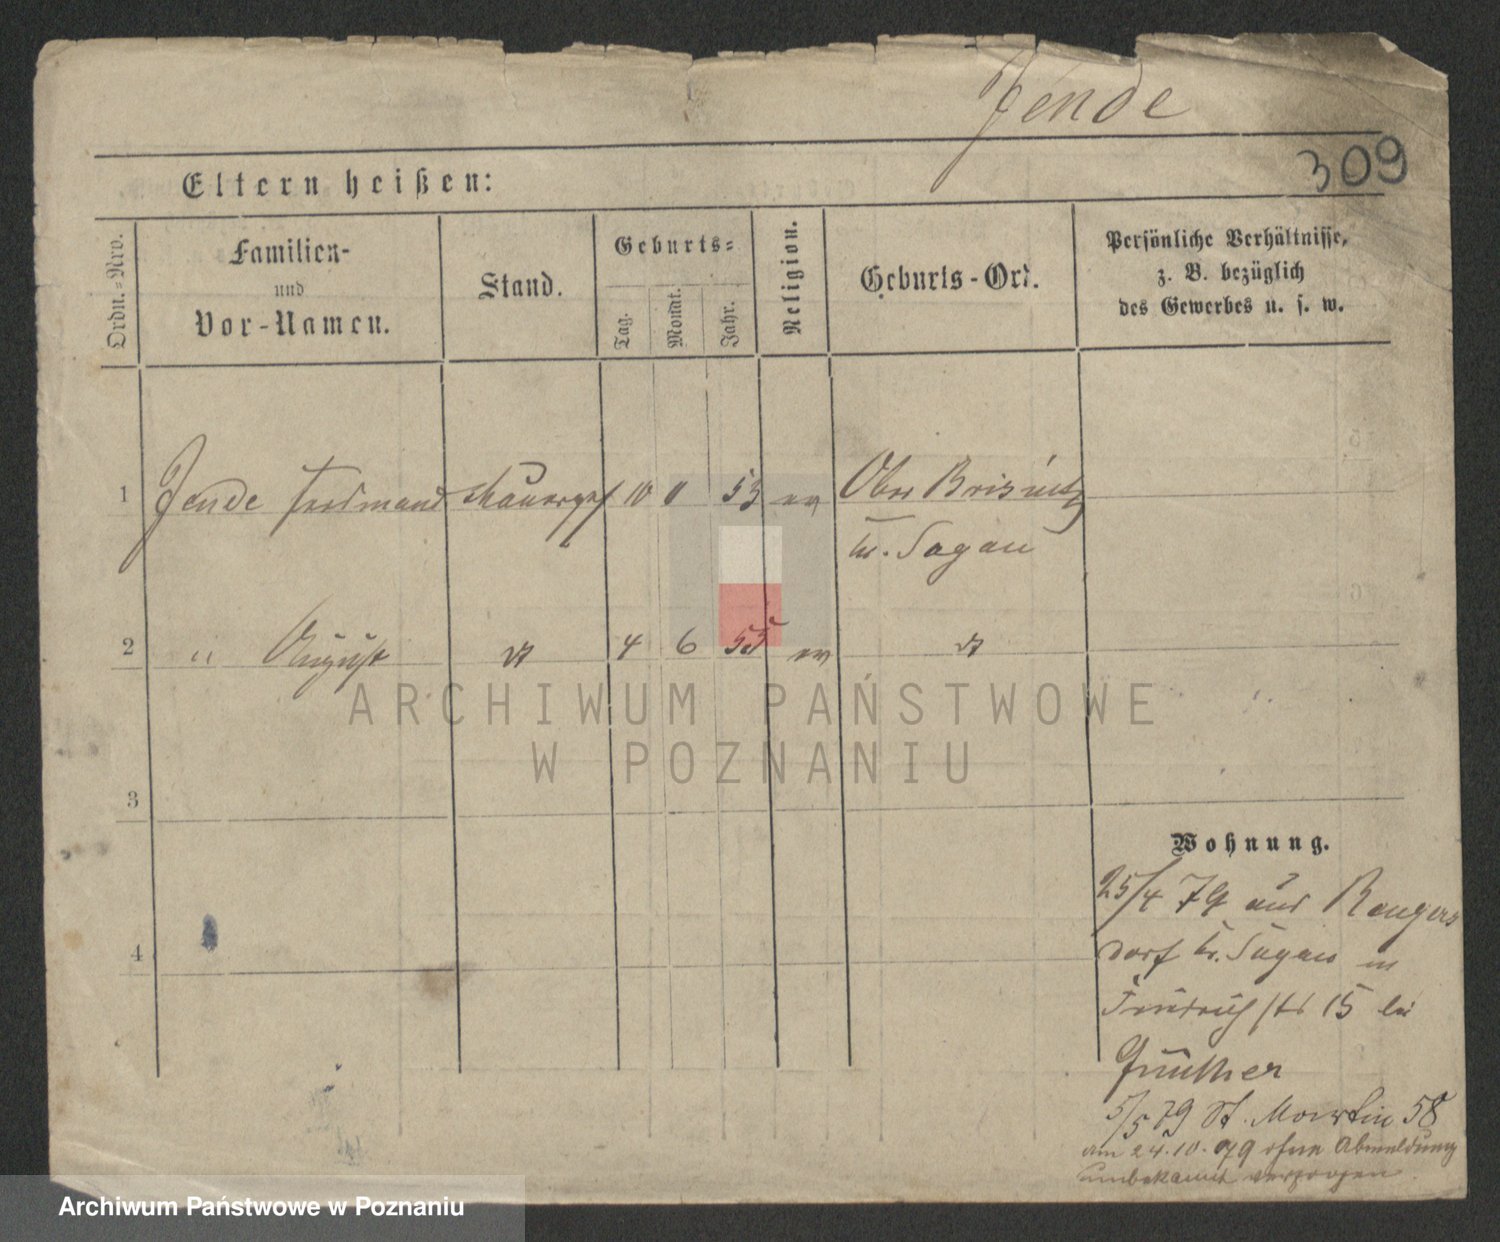 Jende
309
Eltern heißen:
Ordn.-Nro.
Familien-
und
Vor-Namen.
Stand.
Geburts-
Tag.
Monat.
Jahr.
Religion.
Geburts-Ort.
Persönliche Verhältnisse,
z. B. bezüglich
des Gewerbes u. s. w.
1 Jende Ferdinand Mauerges 10 53 ev Ober Brisnitz
Kr. Sagan
2 " August dt 4 6 55 ev dt
3
4
Wohnung.
25/4 79 aus Rengers
dorf Kr. Sagan in
Friedrichstr 15 bei
Günther
5/5 79 St. Martin 58
am 24.10.79 ohne Abmeldung
unbekannt verzogen
ARCHIWUM PAŃSTWOWE
W POZNANIU
Archiwum Państwowe w Poznaniu